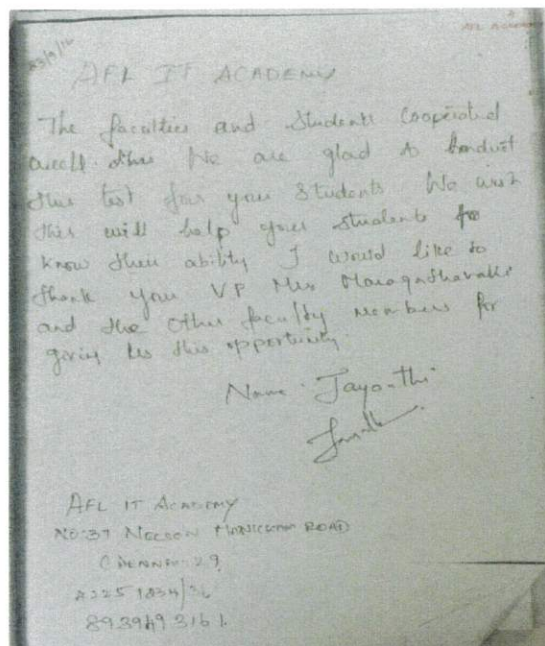 AFL IT ACADEMY
The faculties and Students Cooperated
well We are glad to Conduct
this test for your Students We wish
this will help your students to
know their ability I would like to
thank your VP Mrs
and the other faculty members for
giving us this opportunity.
Name: Jayanthi
AFL IT ACADEMY
NO:37 NELSON MANICKAM ROAD
CHENNAI-29
8939493161